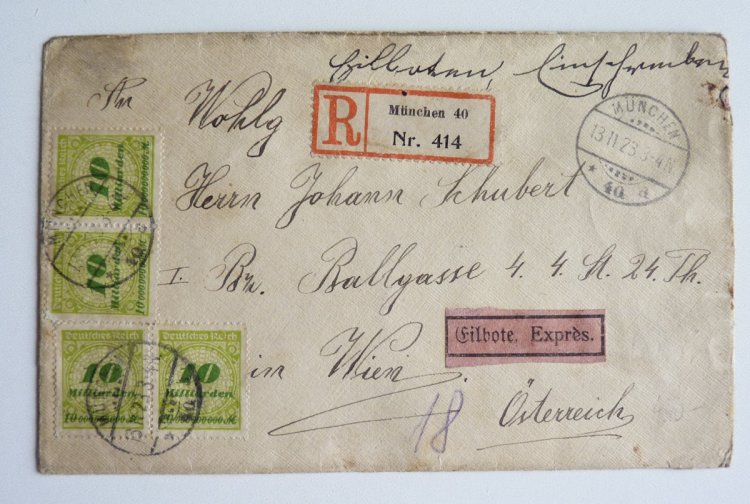 Eilboten, Einschreiben
An Wohlg
R
München 40
Nr. 414
MÜNCHEN
13.11.23.3-4N
* 40 d
Herrn Johann Schubert
I. Bz. Ballgasse 4. 4. St. 24. Th.
in Wien
Eilbote. Exprès.
Österreich
18
10
Milliarden
10
Milliarden
Deutsches Reich
10
Milliarden
10000000000 M
Deutsches Reich
10
Milliarden
10000000000 M